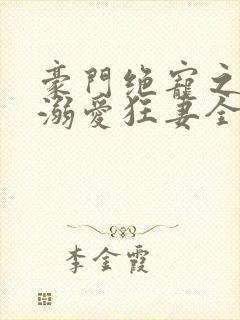 豪門绝寵之
溺愛狂妻全
李金霞